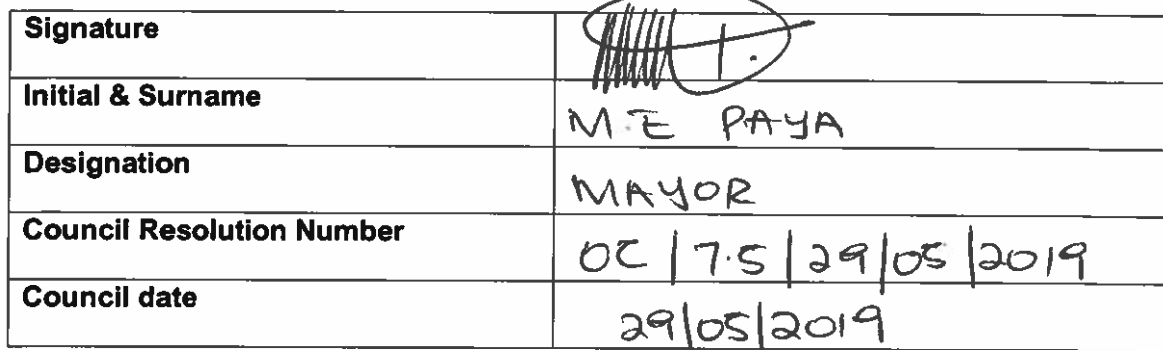 Signature
Initial & Surname M.E PAYA
Designation MAYOR
Council Resolution Number OC/7.5/29/05/2019
Council date 29/05/2019